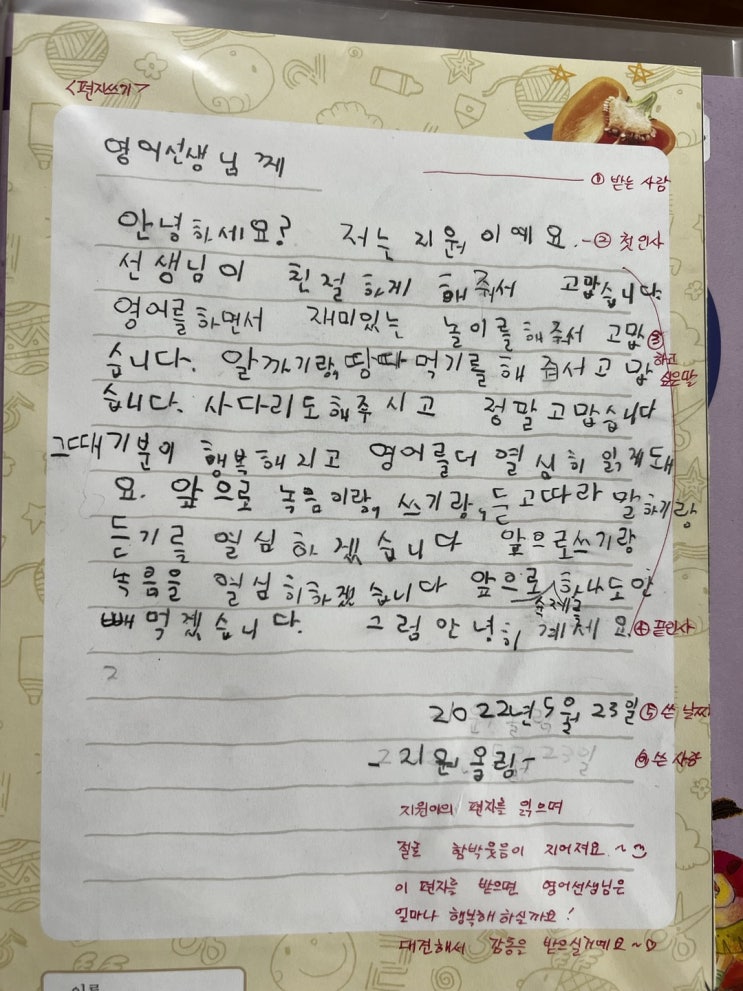 <편지쓰기>
영어선생님께
① 받는 사람
안녕하세요? 저는 지원이예요. -② 첫인사
선생님이 친절하게 해줘서 고맙습니다.
영어를하면서 재미있는 놀이를해주서 고맙
③ 하고 싶은말
습니다. 알까기랑, 땅따먹기를해 줘서고맙
습니다. 사다리도해주시고 정말고맙습니다
그때기분이 행복해지고 영어를더 열심히 읽게돼
요. 앞으로 녹음이랑, 쓰기랑, 듣고따라 말하기랑
듣기를 열심하겠습니다 앞으로쓰기랑
녹음을 열심히하겠습니다 앞으로 숙제를 하나도안
빼먹겠습니다. 그럼안녕히 계세요. ④ 끝인사
2
2022년5월 23일 ⑤ 쓴 날짜
-지원올림- ⑥ 쓴 사람
지원이의 편지를 읽으며
절로 함박웃음이 지어져요~
이 편지를 받으면 영어선생님은
얼마나 행복해하실까요!
대견해서 감동을 받으실거예요~♡
이름